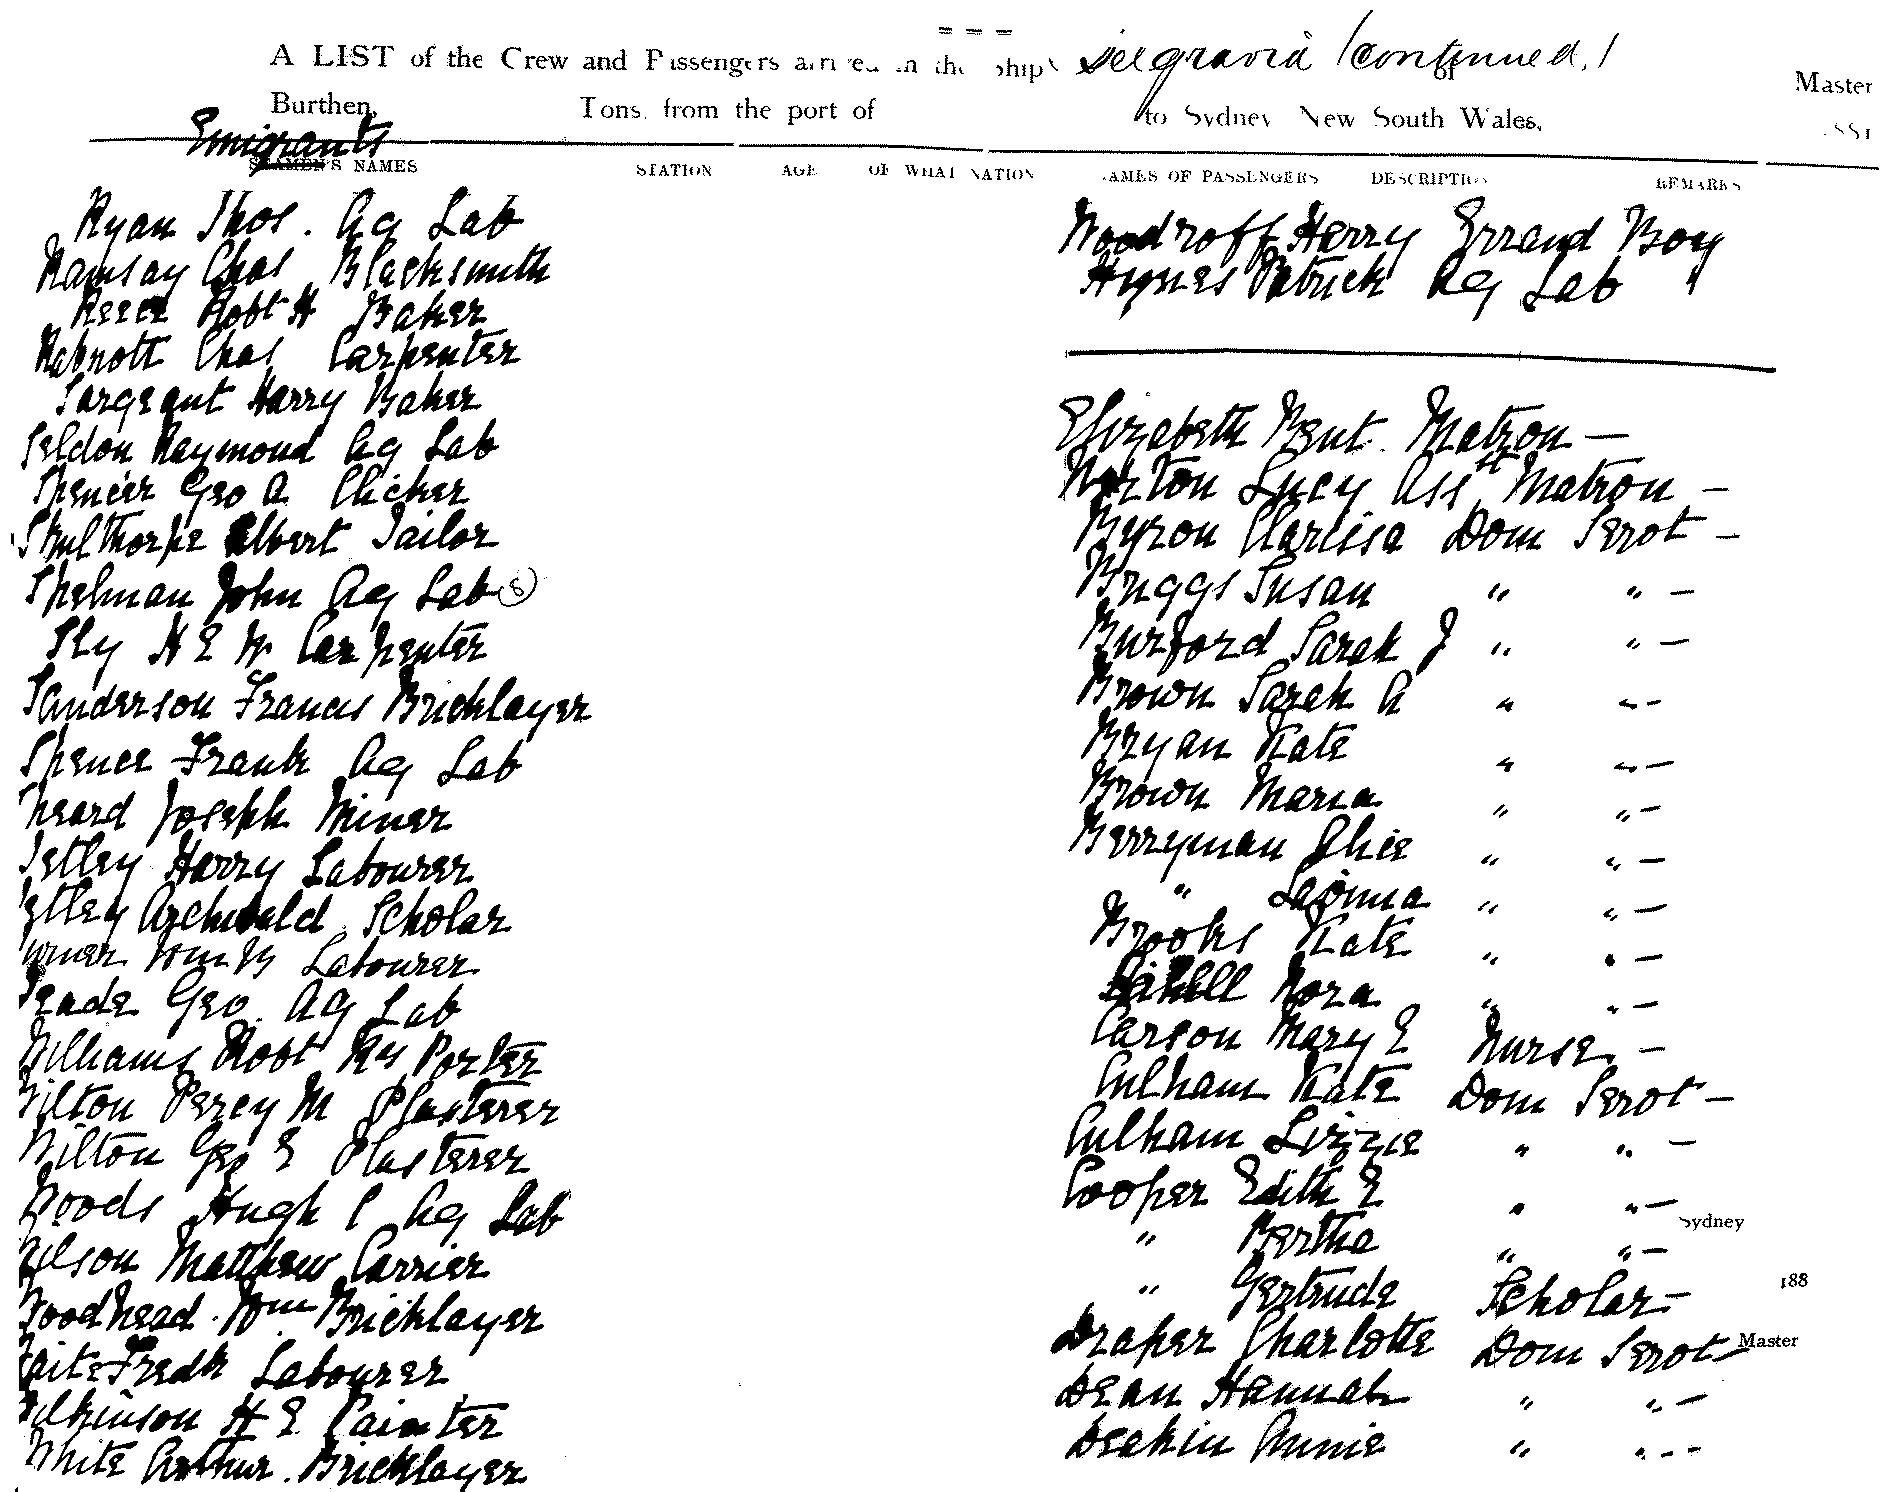 A LIST of the Crew and Passengers arrived in the ship Belgravia (continued.) of Master
Burthen, Tons, from the port of to Sydney New South Wales,
Emigrants
SEAMEN'S NAMES STATION AGE OF WHAT NATION NAMES OF PASSENGERS DESCRIPTION REMARKS
Ryan Thos. Ag Lab
Ramsay Chas Blacksmith
Reece Robt H Baker
Chas Carpenter
Sargeant Harry Baker
Seldon Raymond Ag Lab
Spencer Geo A Clicker
Skulthorpe Albert Tailor
Spelman John Ag Lab (8)
Sly H E W Carpenter
Sanderson Francis Bricklayer
Spence Frank Ag Lab
heard Joseph Miner
Tetley Harry Labourer
etley Archibald Scholar
urner Wm Labourer
Geo. Ag Lab
Williams Robt Rly Porter
Wilton Percy M Plasterer
Wilton Geo E Plasterer
Woods Hugh C Ag Lab
Wilson Matthew Carrier
Woodhead Wm Bricklayer
Waite Fredk Labourer
Wilkinson H E Painter
White Arthur. Bricklayer
Woodroff Harry Errand Boy
Hynes Patrick Ag Lab
Elizabeth Bent. Matron —
Norton Lucy Asst Matron —
Byron Clarissa Dom Servt —
Briggs Susan " " —
Burford Sarah J " " —
Brown Sarah A " " —
Bryan Kate " " —
Brown Maria " " —
Berryman Alice " " —
" Lavinia " " —
Brooks Kate " " —
Nora " " —
Carson Mary E Nurse —
Culham Kate Dom Servt —
Culham Lizzie " " —
Cooper Edith E " " —
Sydney
" Bertha " " —
" Gertrude Scholar —
188
Draper Charlotte Dom Servt —
Master
Dean Hannah " " —
Deakin Annie " " —